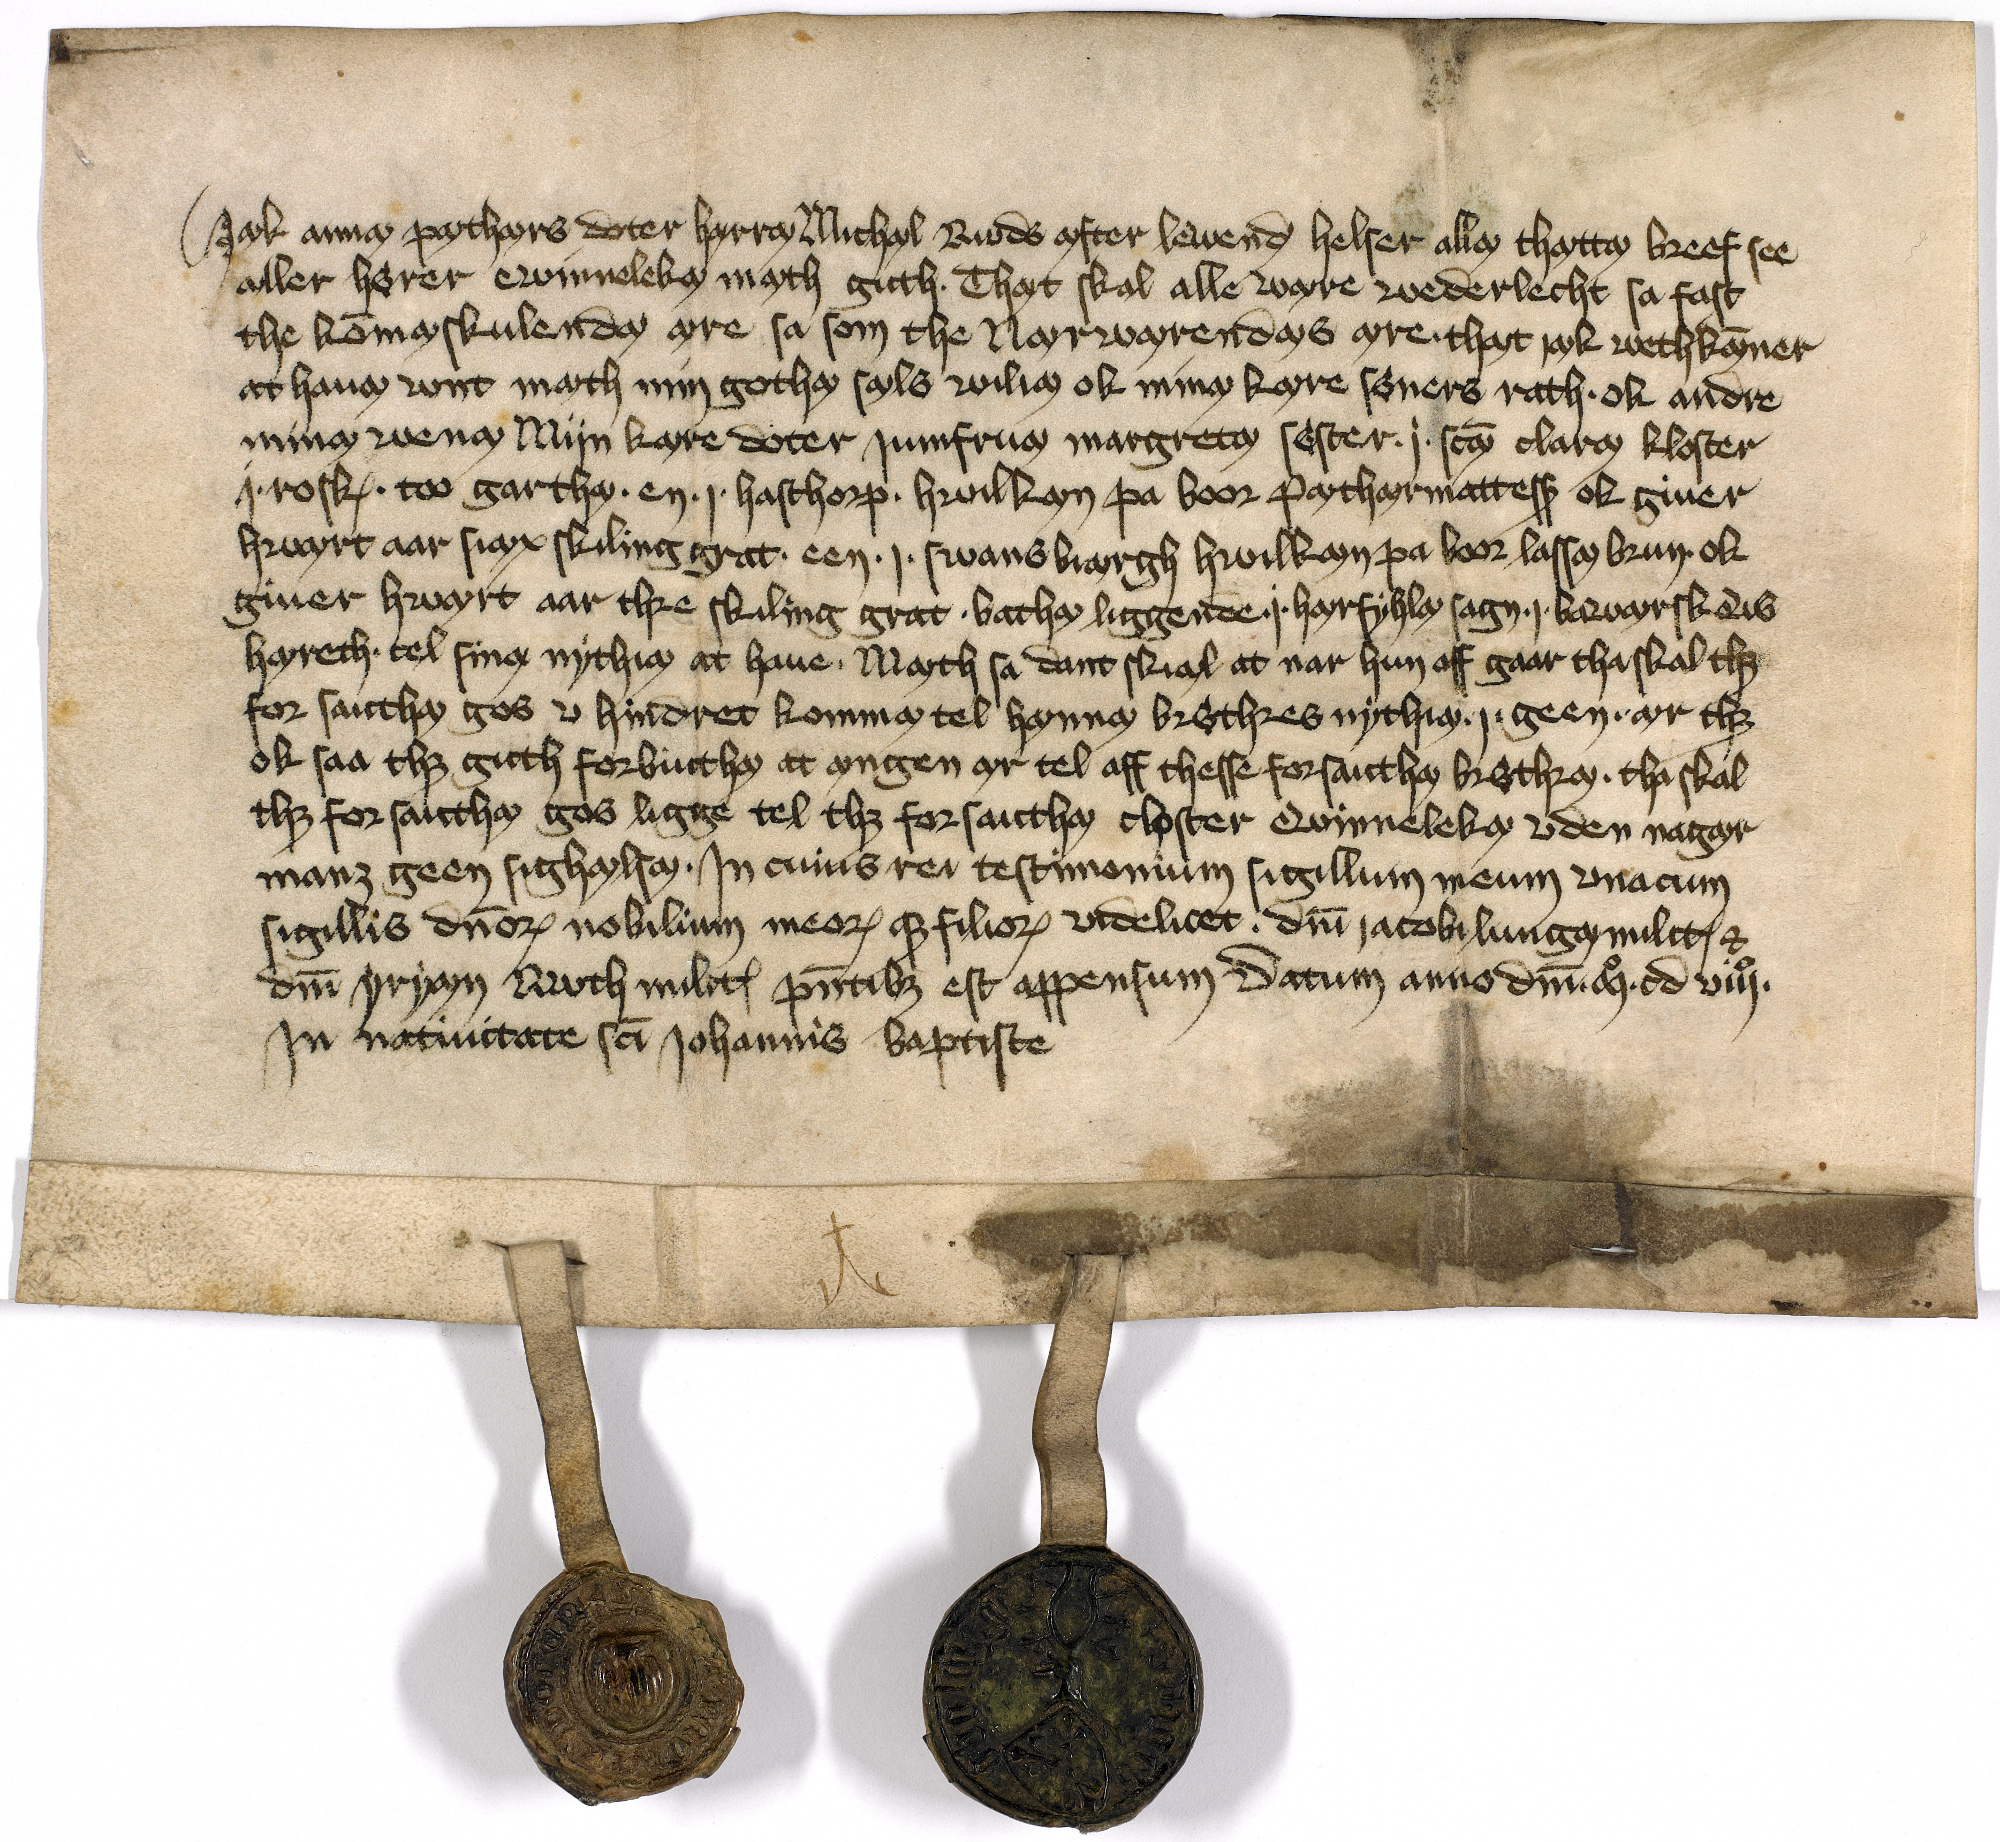 Jæk annæ pæthærs doter hærræ Michæl Ruds æfter lewend helser allæ thættæ breef see
aller hører ewinnelekæ mæth guth. Thæt skal alle wære wederlecht sa fast
the ko̅mæskulendæ ære sa som the Nærwærendæs ære. thæt jæk wethkæ̅ner
at hauæ unt mæth min gothæ sæls wiliæ ok minæ kære søners rath. ok andre
minæ wenæ Mijn kære doter jumfruæ margretæ søster. j. sc̅æ claræ kloster
j. rosk. too garthæ. en. j. hasthorp. hwilkæn pa boor Pæthærmattess ok giuer
hwært aar siæx skiling grat. een. j. swansbiærgh hwilkæn pa boor lassæ brun. ok
giuer hwært aar thre skiling grat. bathæ liggende. j. hærfyhlæ sagn. j. bawærskous
hæreth. tel sinæ nythiæ at haue. Mæth sa dant skiæl at nar hun aff gaar thaskal thꝫ
for saucthæ gos v hindret kommæ tel hænnæ brøthres nythiæ. j. geen. ær thꝫ
ok saa thꝫ guth forbiuthæ at ængen ær tel aff thesse forsaucthæ brøthræ. tha skal
thꝫ for saucthæ gos ligge tel thꝫ for saucthæ closter ewinnelekæ vden nagær
manz geen sighælsæ. In cuius rei testimonium sigillum meum vnacum
sigillis dn̅oꝝ nobilium meoꝝ qꝫ filioꝝ videlicet. dn̅i jacobi lungæ milit &
dn̅i yryæn Ruth milit pn̅tibꝫ est appensum Datum anno dn̅i. mº. cd viijº.
In natiuitate sc̅i Johannis baptiste